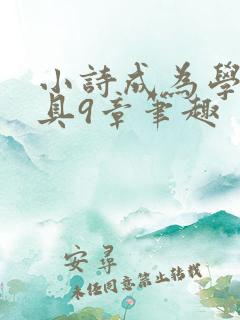 小詩成為學
具9章筆趣
安尋
未經同意禁止轉載